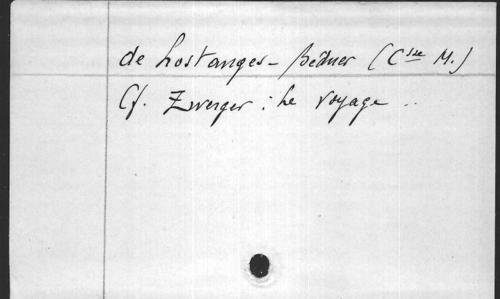 de Lostanges - Béduer (Csse M.)
Cf. Zwerger : Le voyage ..